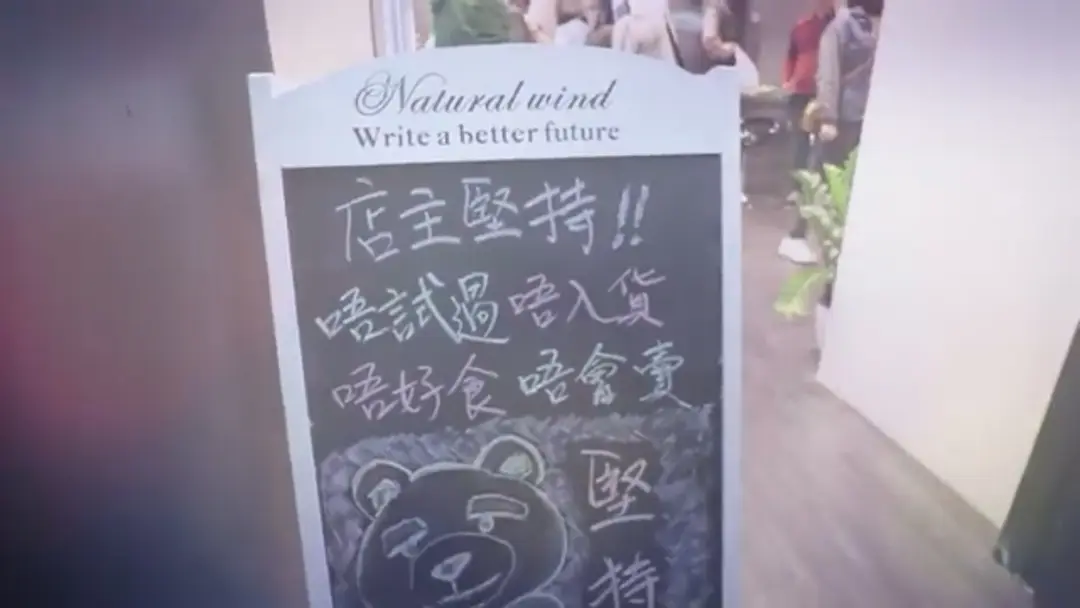 Natural wind
Write a better future
店主堅持!!
唔試過 唔入貨
唔好食 唔會賣
堅
持